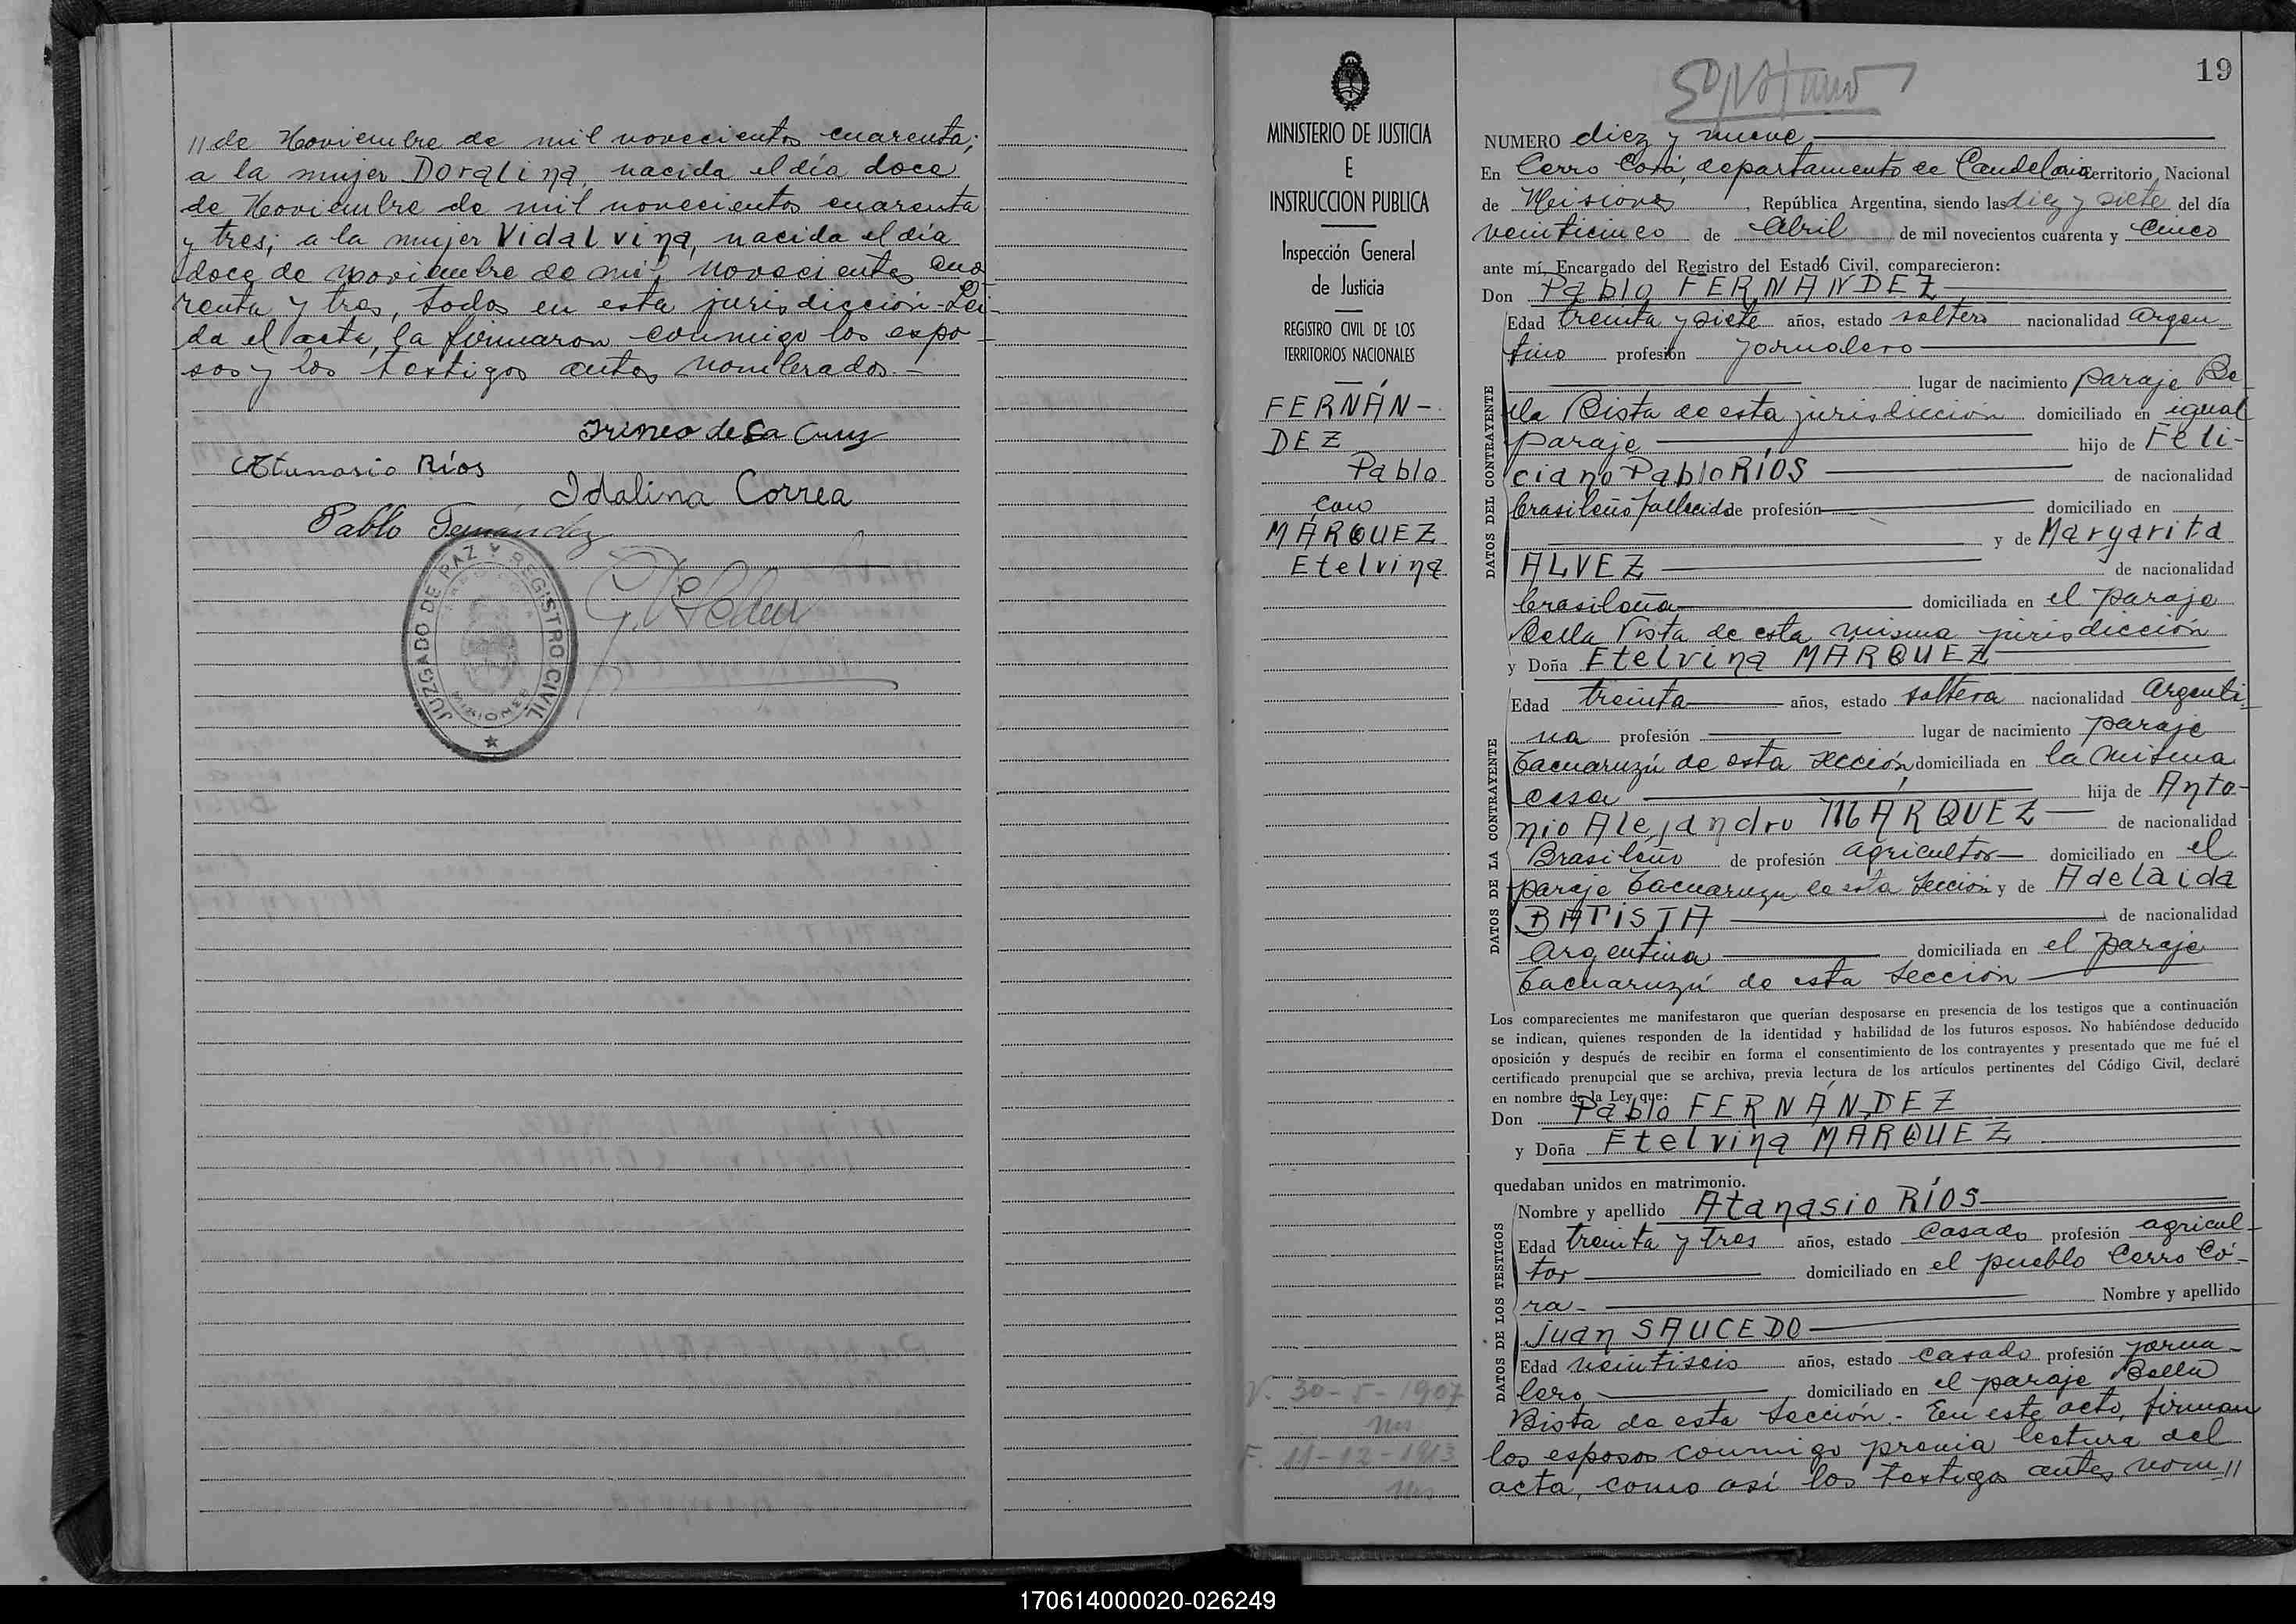 // de Noviembre de mil novecientos cuarenta;
a la mujer Doralina, nacida el día doce
de Noviembre de mil novecientos cuarenta
y tres; a la mujer Vidalvina, nacida el día
doce de noviembre de mil novecientos cua
renta y tres, todos en esta jurisdicción - Lei-
da el acta, la firmaron conmigo los espo-
sos y los testigos antes nombrados. -
Irineo de la Cruz
Atanasio Ríos
Idalina Correa
Pablo Fernández
JUZGADO DE PAZ Y REGISTRO CIVIL
MISIONES
MINISTERIO DE JUSTICIA
E
INSTRUCCION PUBLICA
Inspección General
de Justicia
REGISTRO CIVIL DE LOS
TERRITORIOS NACIONALES
FERNÁN-
DEZ
Pablo
con
MÁRQUEZ
Etelvina
V. 30-5-1907
F. 11-12-1913
19
NUMERO diez y nueve
En Cerro Corá, departamento de Candelaria Territorio Nacional
de Misiones, República Argentina, siendo las diez y siete del día
veinticinco de Abril de mil novecientos cuarenta y cinco
ante mí, Encargado del Registro del Estado Civil, comparecieron:
Don Pablo FERNÁNDEZ
DATOS DEL CONTRAYENTE
Edad treinta y siete años, estado soltero nacionalidad Argen-
tino profesión Jornalero
lugar de nacimiento paraje Be-
lla Bista de esta jurisdicción domiciliado en igual
paraje hijo de Feli-
ciano Pablo RÍOS de nacionalidad
brasileño fallecido de profesión domiciliado en
y de Margarita
ALVEZ de nacionalidad
brasileña domiciliada en el paraje
Bella Vista de esta misma jurisdicción
y Doña Etelvina MÁRQUEZ
DATOS DE LA CONTRAYENTE
Edad treinta años, estado soltera nacionalidad Argenti-
na profesión lugar de nacimiento paraje
Tacuaruzú de esta sección domiciliada en la misma
casa hija de Anto-
nio Alejandro MÁRQUEZ de nacionalidad
Brasileño de profesión agricultor domiciliado en el
paraje Tacuaruzu de esta sección y de Adelaida
BATISTA de nacionalidad
Argentina domiciliada en el paraje
Tacuaruzú de esta sección
Los comparecientes me manifestaron que querían desposarse en presencia de los testigos que a continuación
se indican, quienes responden de la identidad y habilidad de los futuros esposos. No habiéndose deducido
oposición y después de recibir en forma el consentimiento de los contrayentes y presentado que me fué el
certificado prenupcial que se archiva, previa lectura de los artículos pertinentes del Código Civil, declaré
en nombre de la Ley que:
Don Pablo FERNÁNDEZ
y Doña Etelvina MÁRQUEZ
quedaban unidos en matrimonio.
DATOS DE LOS TESTIGOS
Nombre y apellido Atanasio RÍOS
Edad treinta y tres años, estado Casado profesión agricul-
tor domiciliado en el pueblo Cerro Co-
rá- Nombre y apellido
Juan SAUCEDO
Edad veintiseis años, estado casado profesión jorna-
lero domiciliado en el paraje Bella
Bista de esta sección. - En este acto, firman
los esposos conmigo previa lectura del
acta, como así los testigos antes nom//
170614000020-026249